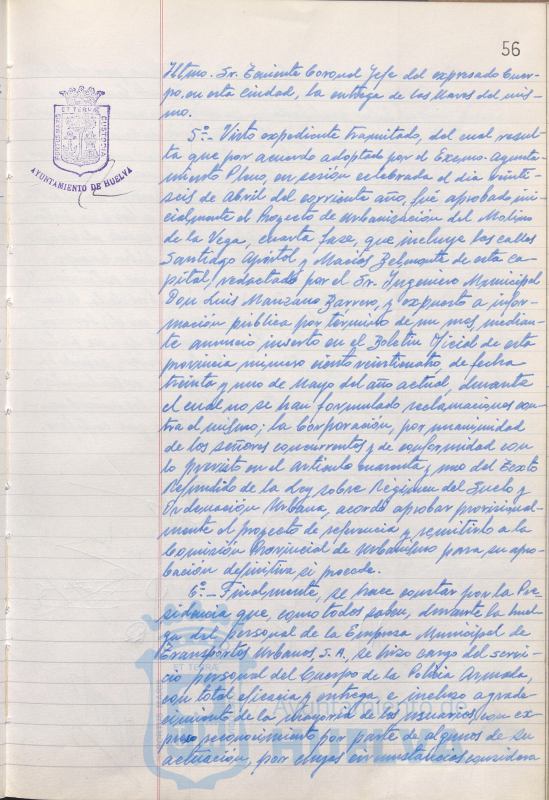 56
Iltmo. Sr. Teniente Coronel Jefe del expresado Cuer-
po, en esta ciudad, la entrega de las llaves del mis-
mo.
5º.- Visto expediente tramitado, del cual resul-
ta que por acuerdo adoptado por el Excmo. Ayunta-
miento Pleno, en sesión celebrada el día veinti-
seis de abril del corriente año, fué aprobado ini-
cialmente el Proyecto de Urbanización del Molino
de la Vega, cuarta fase, que incluye las calles
Santiago Apóstol y Macías Belmonte de esta ca-
pital, redactado por el Sr. Ingeniero Municipal
Don Luis Manzano Barrero, y expuesto a infor-
mación pública por término de un mes, median-
te anuncio inserto en el Boletín Oficial de esta
provincia número ciento veinticuatro, de fecha
treinta y uno de Mayo del año actual, durante
el cual no se han formulado reclamaciones con-
tra el mismo; la Corporación, por unanimidad
de los señores concurrentes y de conformidad con
lo previsto en el artículo cuarenta y uno del Texto
Refundido de la Ley sobre Régimen del Suelo y
Ordenación Urbana, acordó aprobar provisional-
mente el proyecto de referencia y remitirlo a la
Comisión Provincial de Urbanismo para su apro-
bación definitiva si procede.
6º.- Finalmente, se hace constar por la Pre-
sidencia que, como todos saben, durante la huel-
ga del personal de la Empresa Municipal de
Transportes Urbanos, S.A., se hizo cargo del servi-
cio personal del Cuerpo de la Policía Armada,
con total eficacia y entrega, e incluso agrade-
cimiento de la mayoría de los usuarios, con ex-
preso reconocimiento por parte de algunos de su
actuación, por cuyas circunstancias considera
ET TERRA
CUSTODIA
AYUNTAMIENTO DE HUELVA
ET TERRA
Ayuntamiento de
HUELVA